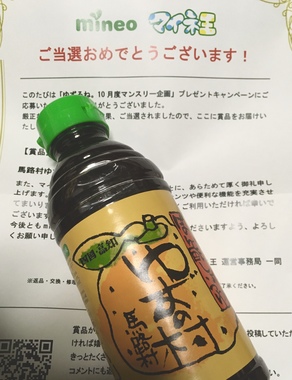 mineo マイネ王
ご当選おめでとうございます！
このたびは「ゆずるね。10月度マンスリー企画」プレゼントキャンペーンにご
応募いた
がとうございました。
厳正
果、ご当選されましたので、ここに賞品をお届けい
たし
【賞品
馬路村ゆ
また、マイ
に、あらためて厚く御礼申し
上げます。
スや便利な機能を充実させ
てまいりま
ご利用いただければ幸いで
す。
今後とも
すよう、よろし
くお願い申し
王 運営事務局 一同
※返品・交換・修
ゆずの村
馬路村
四国・高知
賞品が
投稿していた
ければ嬉
きっとたくさ
コメントにも返